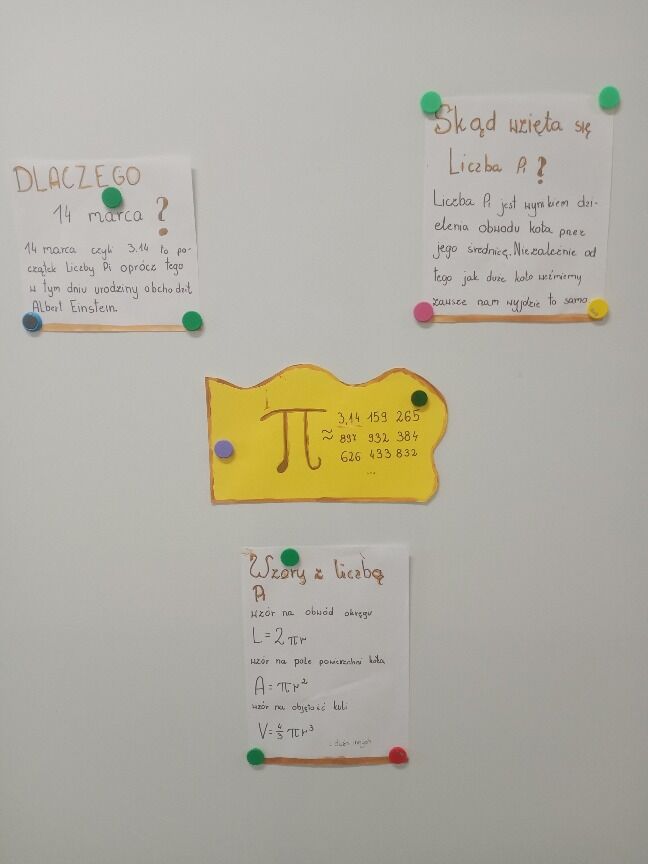 DLACZEGO
14 marca ?
14 marca czyli 3.14 to po-
czątek Liczby Pi oprócz tego
w tym dniu urodziny obchodził
Albert Einstein.
Skąd wzięta się
Liczba Pi ?
Liczba Pi jest wynikiem dzi-
elenia obwodu koła przez
jego średnicę. Niezależnie od
tego jak duże koło weźmiemy
zawsze nam wyjdzie to samo.
π ≈ 3,14 159 265
897 932 384
626 433 832
...
Wzory z liczbą
Pi
wzór na obwód okręgu
L = 2πr
wzór na pole powierzchni koła
A = πr²
wzór na objętość kuli
V = 4/3 πr³